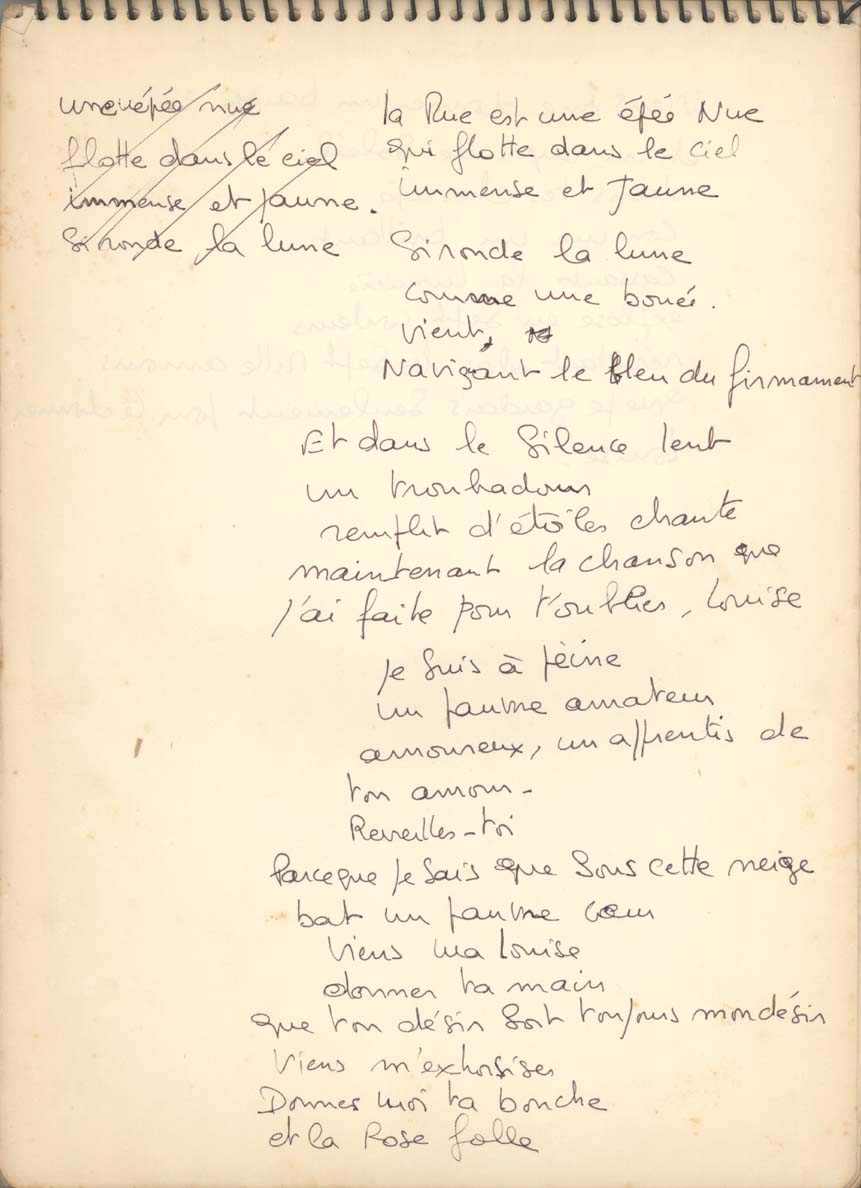 une épée nue
flotte dans le ciel
immense et jaune.
Si ronde la lune
la Rue est une épée Nue
qui flotte dans le ciel
immense et Jaune
Si ronde la lune
comme une boueé.
vient,
Navigant le bleu du firmament
Et dans le Silence lent
un troubadour
remplit d'étoiles chante
maintenant la chanson que
j'ai faite pour t'oublier, Louise
je suis à pèine
un pauvre amateur
amoureux, un apprentis de
ton amour -
Reveilles-toi
Parceque je sais que Sous cette neige
bat un pauvre coeur
Viens ma louise
donner ta main
que ton désir soit toujours mon désir
Viens m'exhorsiser
Donnes moi ta bouche
et la Rose folle